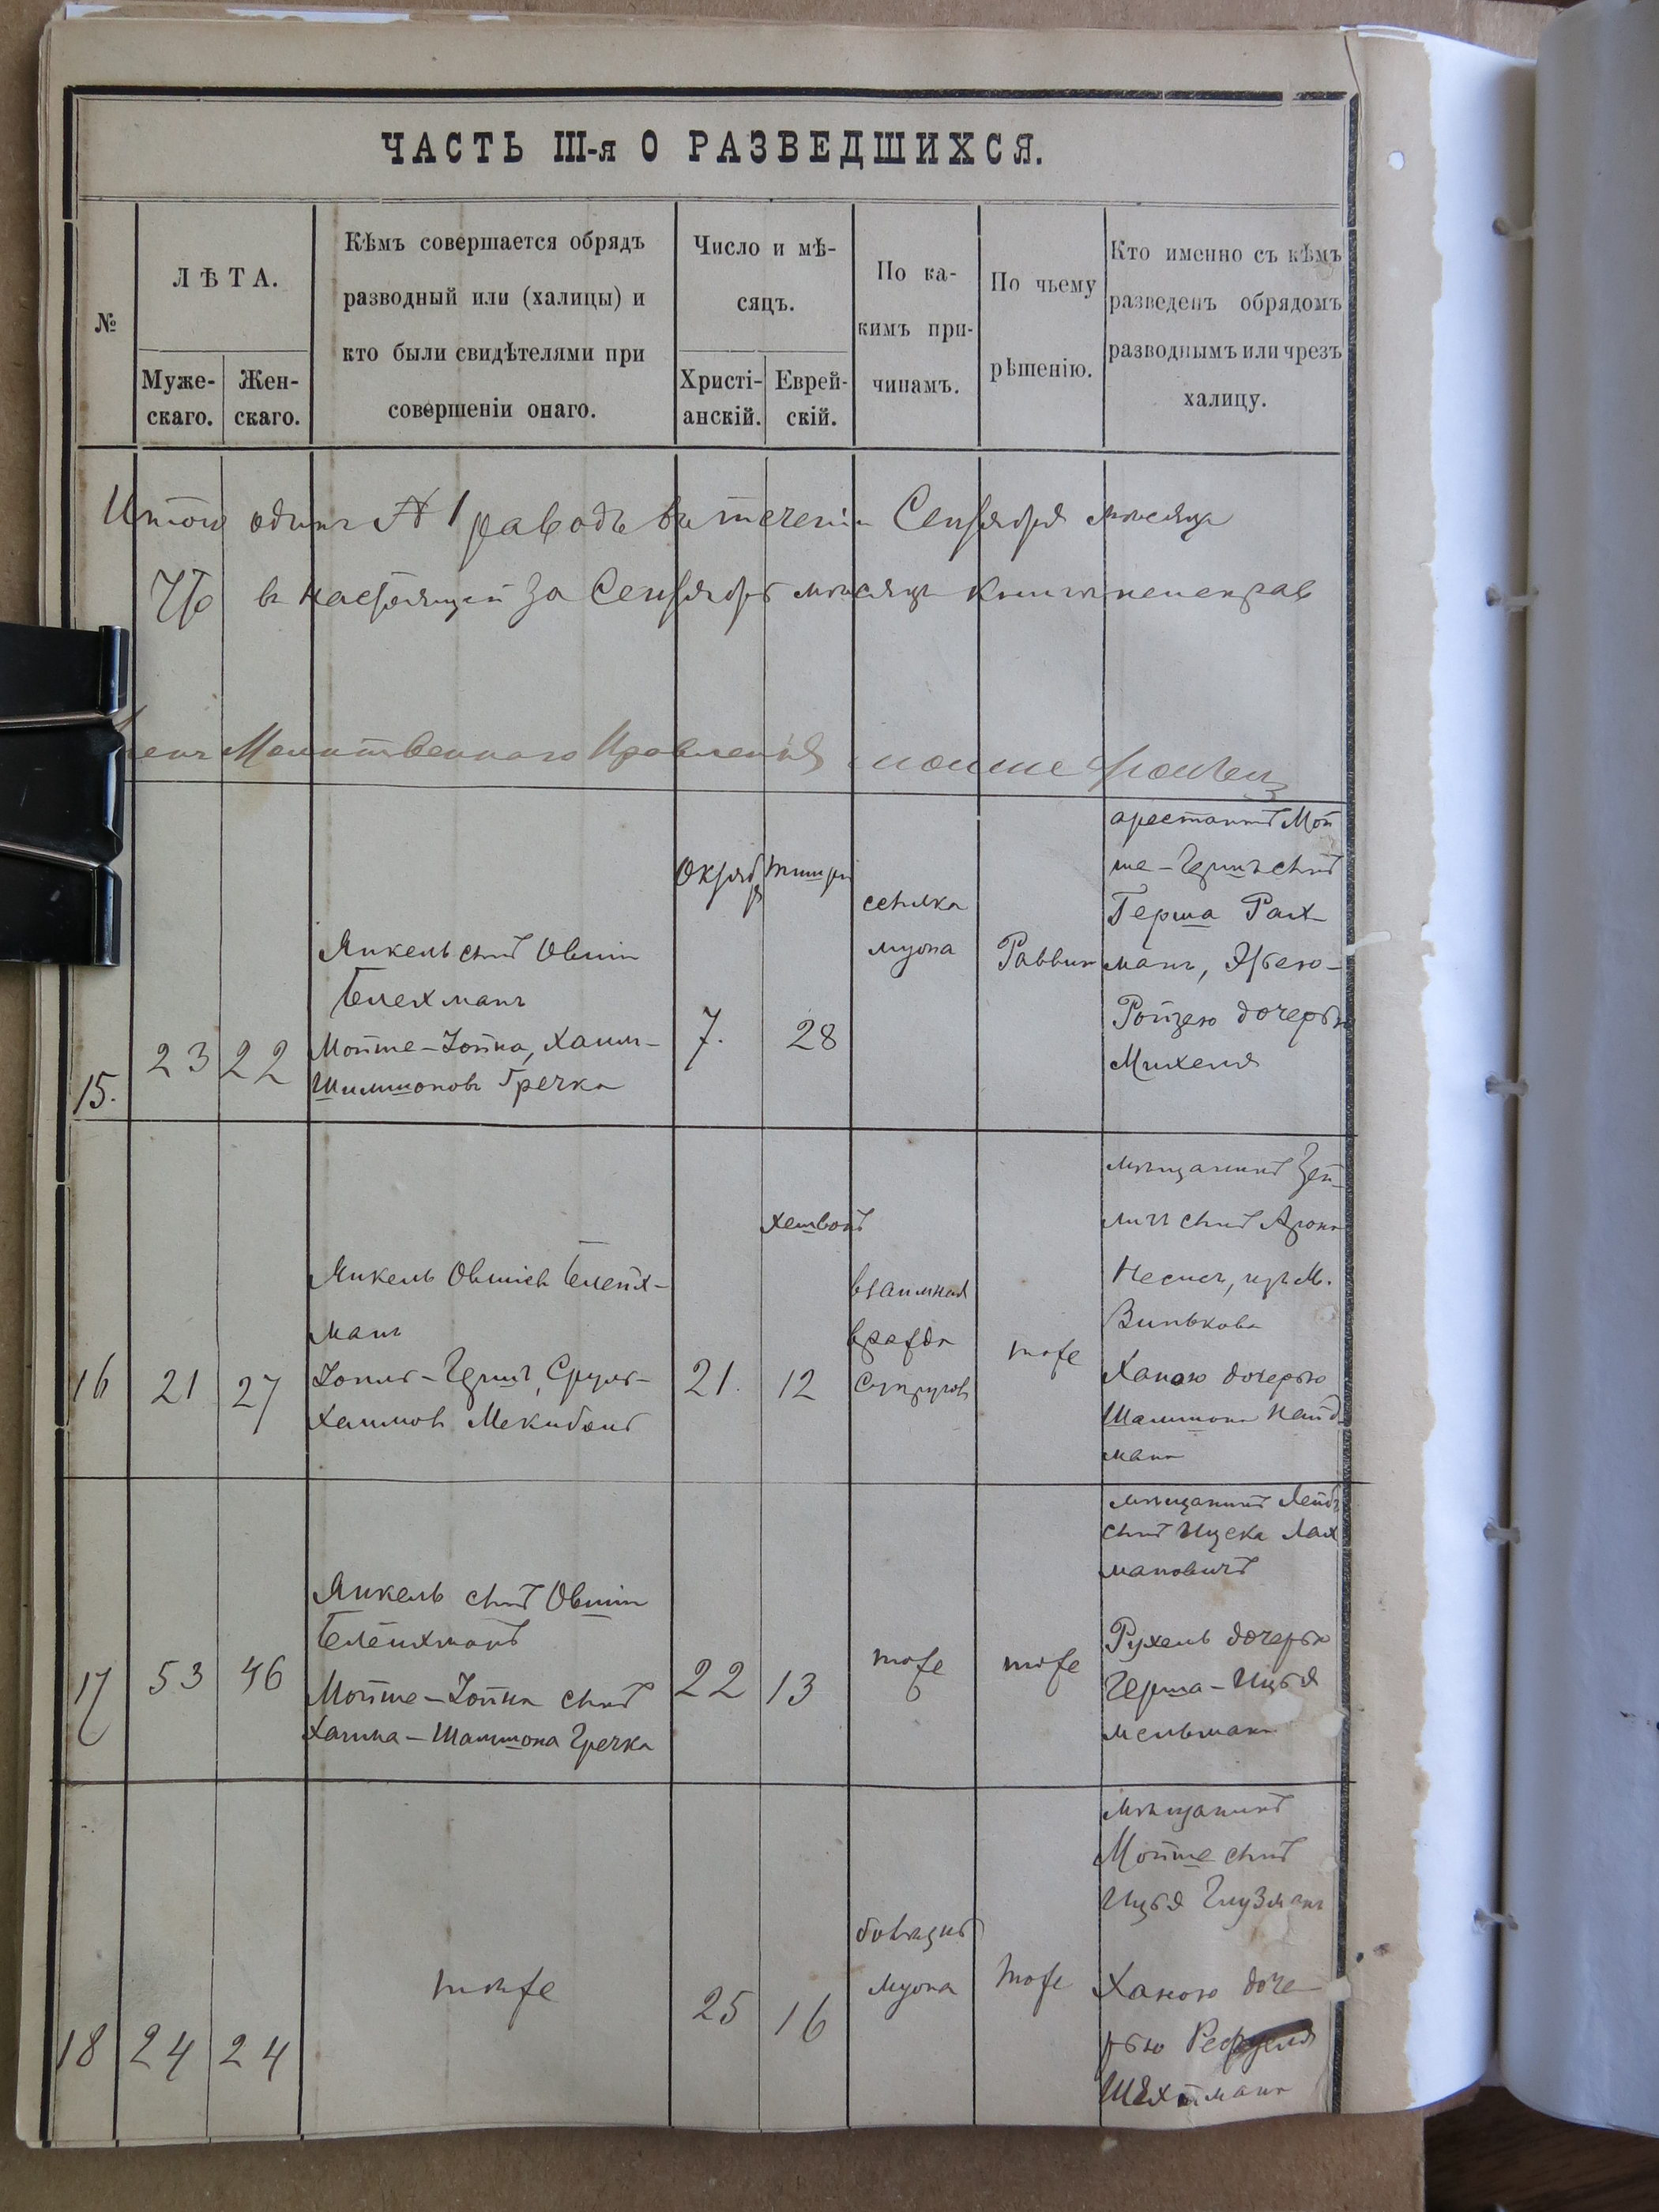 ЧАСТЬ III-я О РАЗВЕДШИХСЯ.
№
ЛѢТА.
Муже-
скаго.
Жен-
скаго.
Кѣмъ совершается обрядъ
разводный или (халицы) и
кто были свидѣтелями при
совершеніи онаго.
Число и мѣ-
сяцъ.
Христі-
анскій.
Еврей-
скій.
По ка-
кимъ при-
чинамъ.
По чьему
рѣшенію.
Кто именно съ кѣмъ
разведенъ обрядомъ
разводнымъ или чрезъ
халицу.
Итого одинъ № 1 разводъ въ теченіи Сентября мѣсяца
Что въ настоящей за Сентябрь мѣсяцъ книги
Молитвенного Правленія мошше
15.
23
22
Янкель сынъ Овшія
Белехманъ
Мойше-Іойна, Хаим-
Шимшоновъ Гречка
Октяб
ря
7.
Тишри
28
ссылка
мужа
Раввин
арестантъ Мой
ше-Гершъ сынъ
Герша Рах-
манъ, Этею-
Ройзею дочерью
Михеля
16
21
27
Янкель Овшіевъ Белейх-
манъ
Іойль-Гершъ, Сруль-
Хаимовъ
21.
хешвонъ
12
взаимная
вражда
супруговъ
тоже
мѣщанинъ Зей-
сынъ Арона
Несисъ, изъ м.
Виньковъ
Ханою дочерью
Шамшона Найд
мана
17
53
46
Янкель сынъ Овшія
Белейхманъ
Мойше-Іойна сынъ
Хаима-Шамшона Гречка
22
13
тоже
тоже
мѣщанинъ Лейбъ
сынъ Ицека Лах
мановичъ
Рухель дочерью
Герша-Ицья
Мельмана
18
24
24
тоже
25
16
болѣзнь
мужа
тоже
мѣщанинъ
Мойше сынъ
Ицья Глузманъ
Ханою доче-
рью
Шехтмана